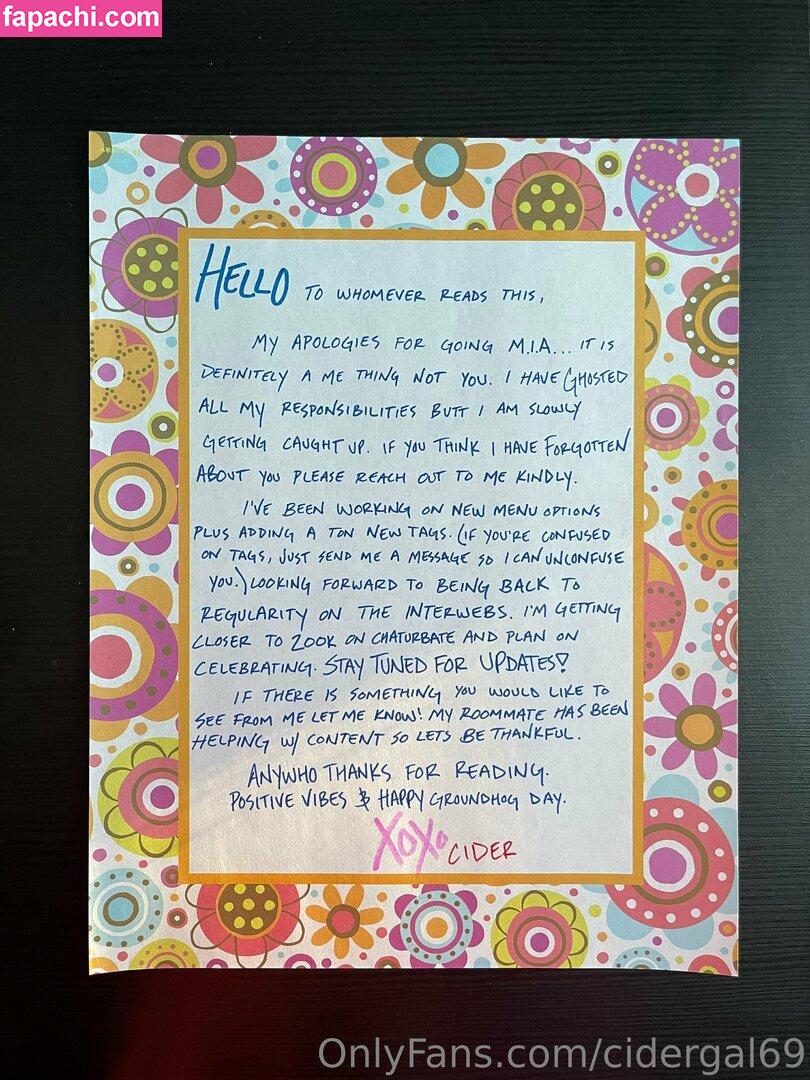 fapachi.com
HELLO TO WHOMEVER READS THIS,
MY APOLOGIES FOR GOING M.I.A... IT IS
DEFINITELY A ME THING NOT YOU. I HAVE GHOSTED
ALL MY RESPONSIBILITIES BUTT I AM SLOWLY
GETTING CAUGHT UP. IF YOU THINK I HAVE FORGOTTEN
ABOUT YOU PLEASE REACH OUT TO ME KINDLY.
I'VE BEEN WORKING ON NEW MENU OPTIONS
PLUS ADDING A TON NEW TAGS. (IF YOU'RE CONFUSED
ON TAGS, JUST SEND ME A MESSAGE SO I CAN UNCONFUSE
YOU.) LOOKING FORWARD TO BEING BACK TO
REGULARITY ON THE INTERWEBS. I'M GETTING
CLOSER TO 200K ON CHATURBATE AND PLAN ON
CELEBRATING. STAY TUNED FOR UPDATES!
IF THERE IS SOMETHING YOU WOULD LIKE TO
SEE FROM ME LET ME KNOW! MY ROOMMATE HAS BEEN
HELPING W/ CONTENT SO LETS BE THANKFUL.
ANYWHO THANKS FOR READING.
POSITIVE VIBES & HAPPY GROUNDHOG DAY.
XOXO CIDER
OnlyFans.com/cidergal69